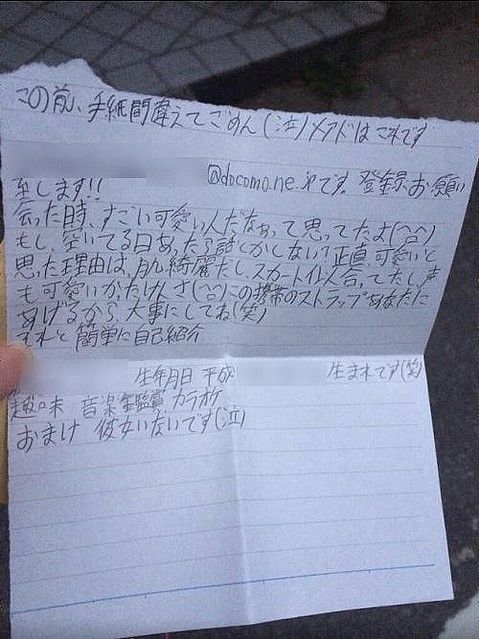 この前、手紙間違えてごめん(泣)メアドはこれです
@docomo.ne.jpです。登録お願い
至します!!
会った時、すごい可愛い人だなぁって思ってたよ(^-^)
もし、空いてる日あったら話しとかしない?正直可愛いと
思った理由は、肌綺麗だし、スカート似合ってたし、声
も可愛いかったけんさ(^-^)この携帯のストラップあなたに
あげるから大事にしてね(笑)
それと簡単に自己紹介
生年月日 平成 生まれです(笑)
趣味 音楽鑑賞 カラオケ
おまけ 彼女いないです(泣)